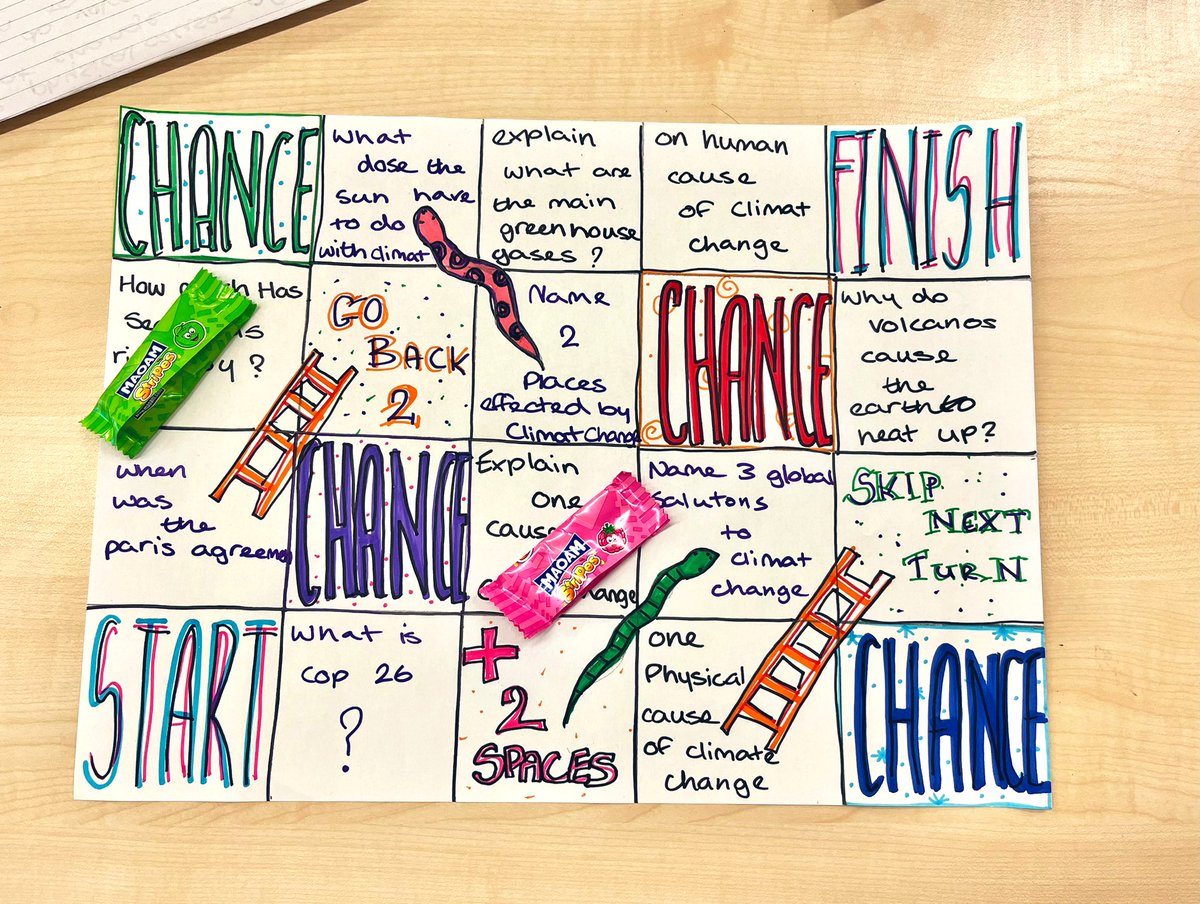 CHANCE
What
dose the
sun have
to do
with climat
explain
what are
the main
greenhouse
gases?
on human
cause
of climat
change
FINISH
How Has
?
MAOAM
Stripes
GO
BACK
2
Name
2
Places
effected by
Climat Change
CHANCE
Why do
volcanos
cause
the
earth to
heat up?
when
was
the
paris agreemen
CHANCE
Explain
One
cause
MAOAM
Stripes
Name 3 global
salutons
to
climat
change
SKIP
NEXT
TURN
START
What is
COP 26
?
+
2
SPACES
one
Physical
cause
of climate
change
CHANCE